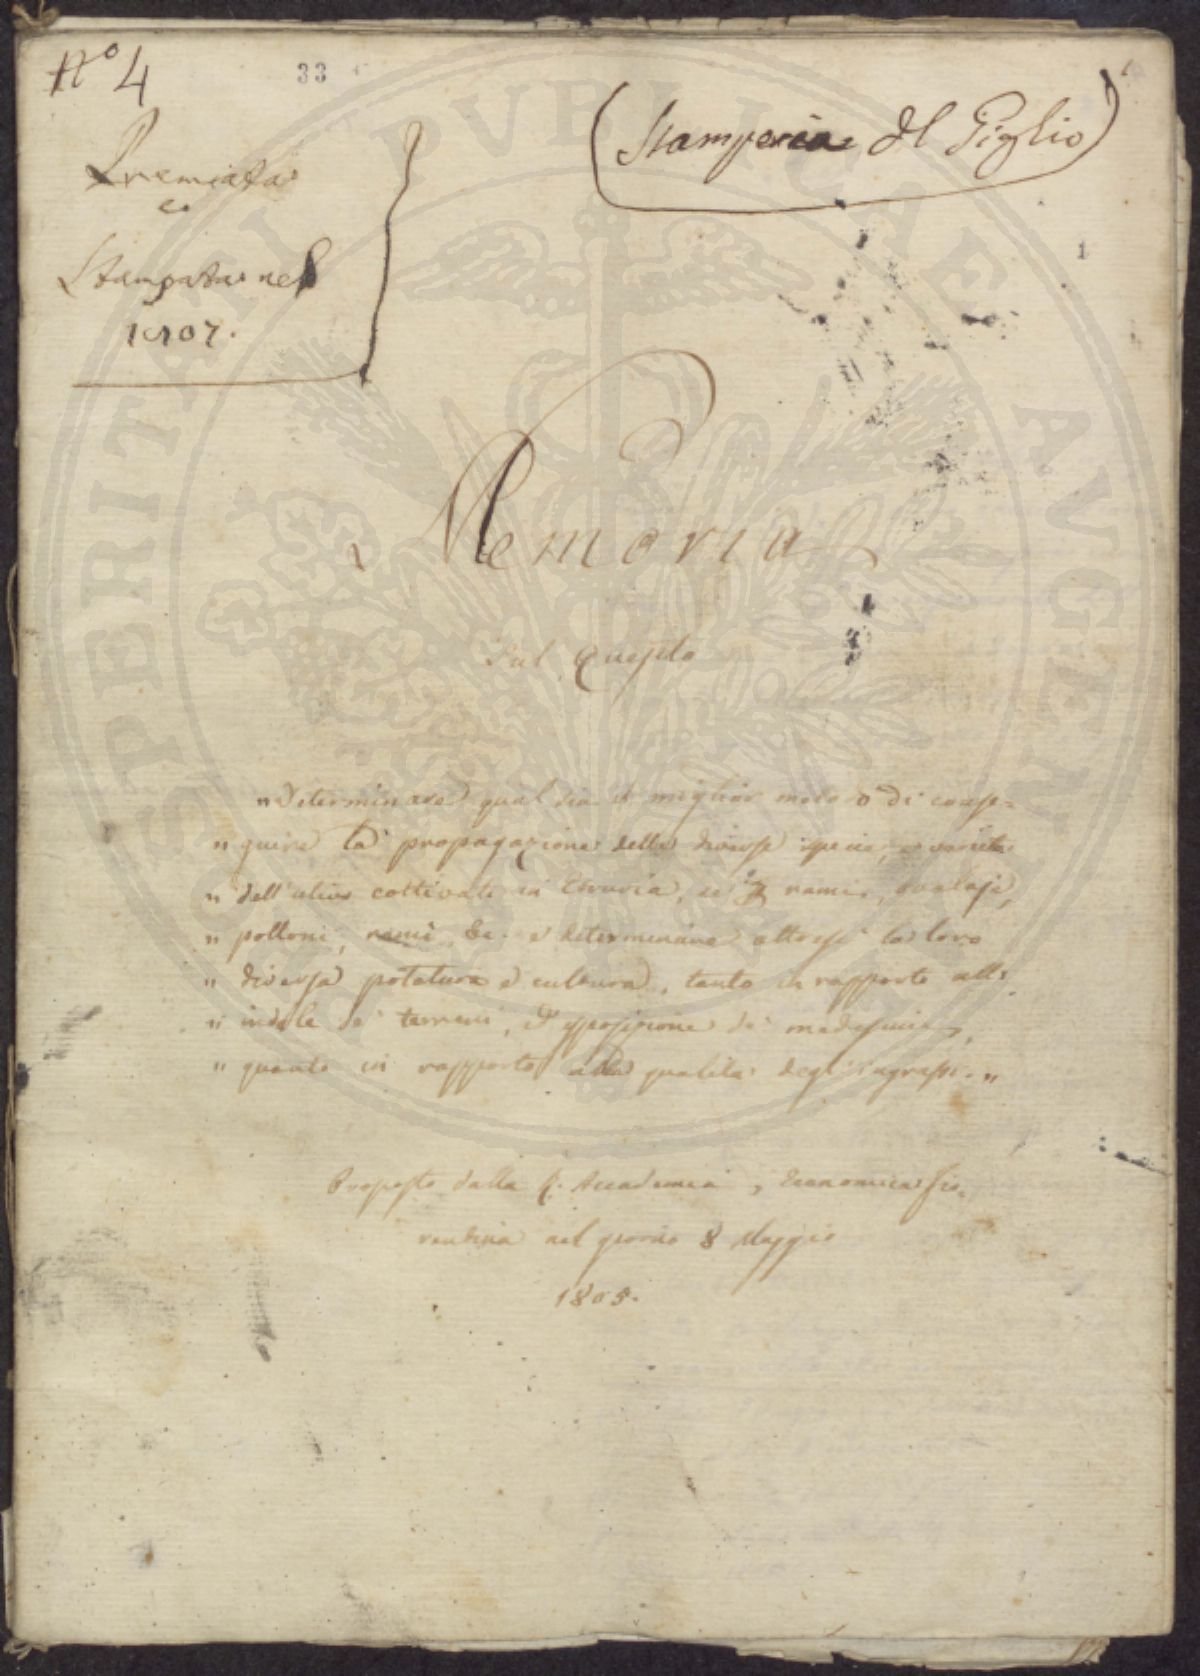 N° 4
33
Premiata
e
Stampata nel
1807.
(Stamperia del Giglio)
1
Memoria
Sul Quesito
"Determinare qual sia il miglior metodo di conse=
" guire la propagazione delle diverse specie, e varietà
" dell'ulivo coltivate in Etruria, se rami, ovolaje,
" polloni, rami &c. e determinare altresì la loro
" diversa potatura e cultura, tanto in rapporto all'
" indole de' terreni, ed esposizione de' medesimi,
" quanto in rapporto alla qualità degl'ingrassi. "
Proposto dalla R. Accademia, Economica Fio=
rentina nel giorno 8 Maggio
1805.
PUBLICAE
AUGEN
PERITATI